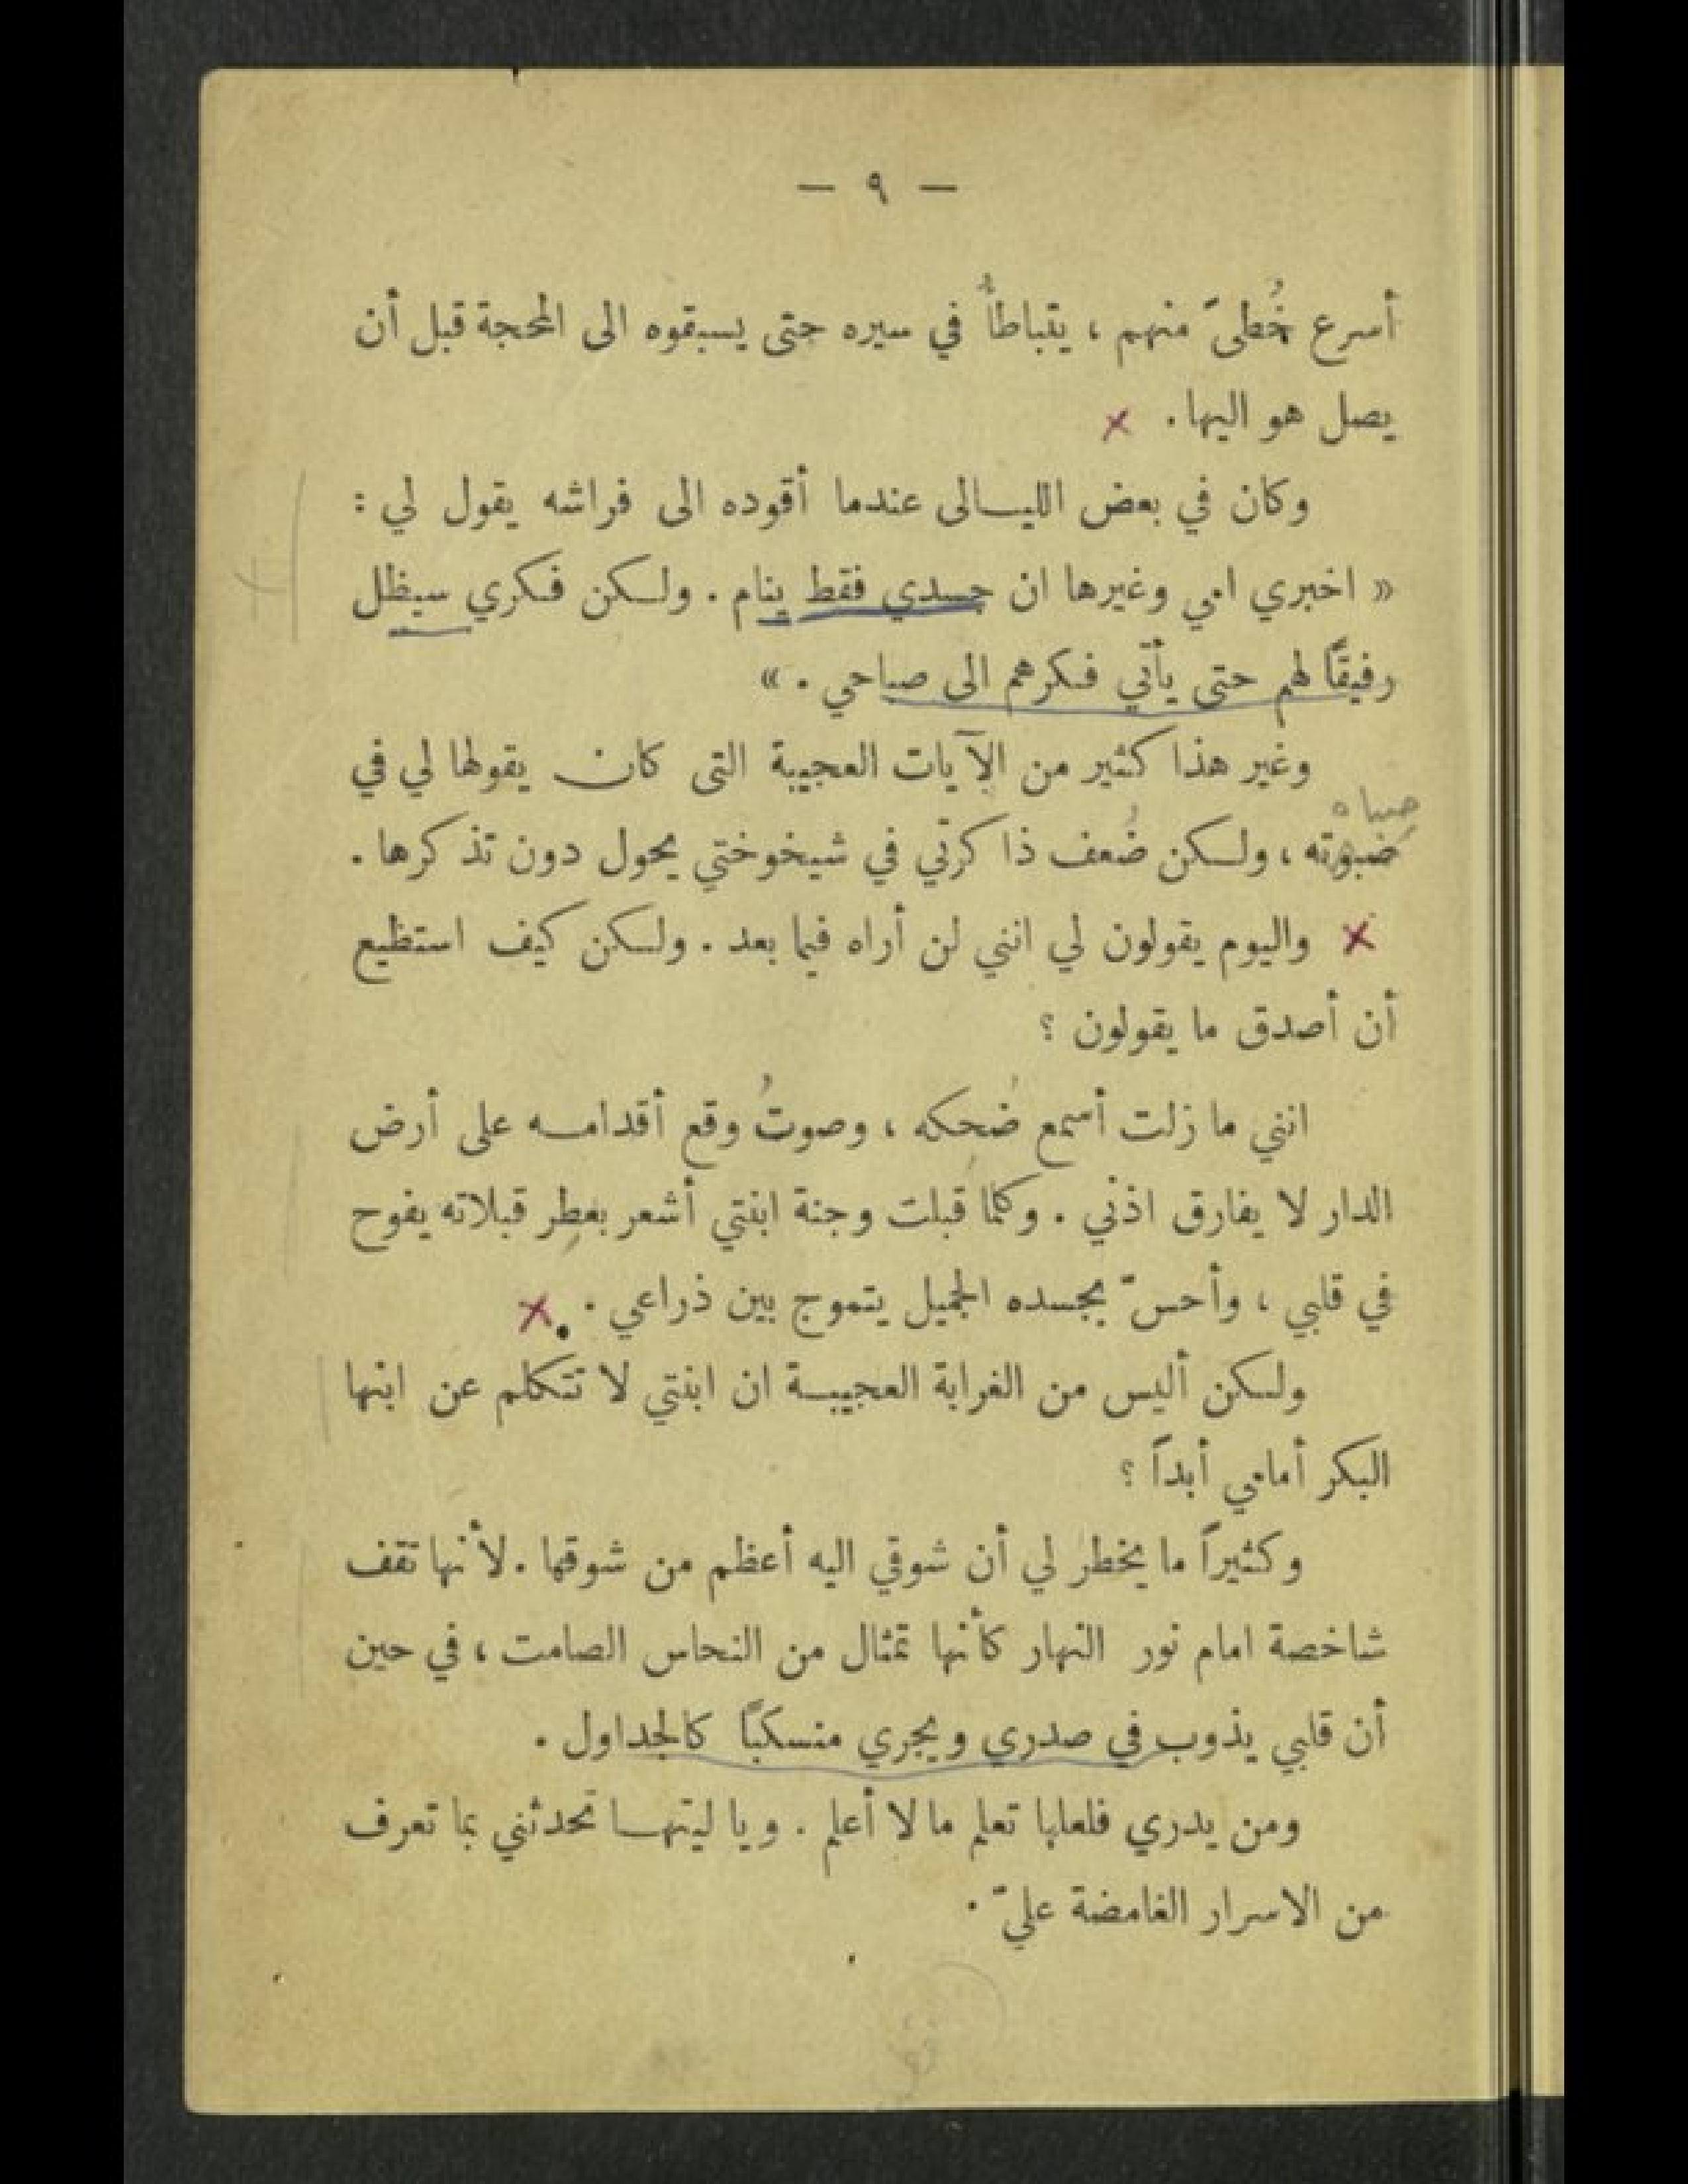 — ٩ —
أسرع خُطىً منهم ، يتباطأُ في سيره حتى يسبقوه الى المحجة قبل أن
يصل هو اليها .
وكان في بعض الليالى عندما أقوده الى فراشه يقول لي :
« اخبري امي وغيرها ان جسدي فقط ينام . ولكن فكري سيظل
رفيقًا لهم حتى يأتي فكرهم الى صباحي . »
وغير هذا كثير من الآيات العجيبة التى كان يقولها لي في
صباه
صبوته ، ولكن ضُعف ذاكرتي في شيخوختي يحول دون تذكرها .
واليوم يقولون لي انني لن أراه فيما بعد . ولكن كيف استطيع
أن أصدق ما يقولون ؟
انني ما زلت أسمع ضُحكه ، وصوتُ وقع أقدامه على أرض
الدار لا يفارق اذني . وكلما قبلت وجنة ابنتي أشعر بعطِر قبلاته يفوح
في قلبي ، وأحسّ بجسده الجميل يتموج بين ذراعي .
ولكن أليس من الغرابة العجيبة ان ابنتي لا تتكلم عن ابنها
البكر أمامي أبداً ؟
وكثيراً ما يخطر لي أن شوقي اليه أعظم من شوقها . لأنها تقف
شاخصة امام نور النهار كأنها تمثال من النحاس الصامت ، في حين
أن قلبي يذوب في صدري ويجري منسكبًا كالجداول .
ومن يدري فلعلها تعلم ما لا أعلم . ويا ليتها تحدثني بما تعرف
من الاسرار الغامضة عليّ .